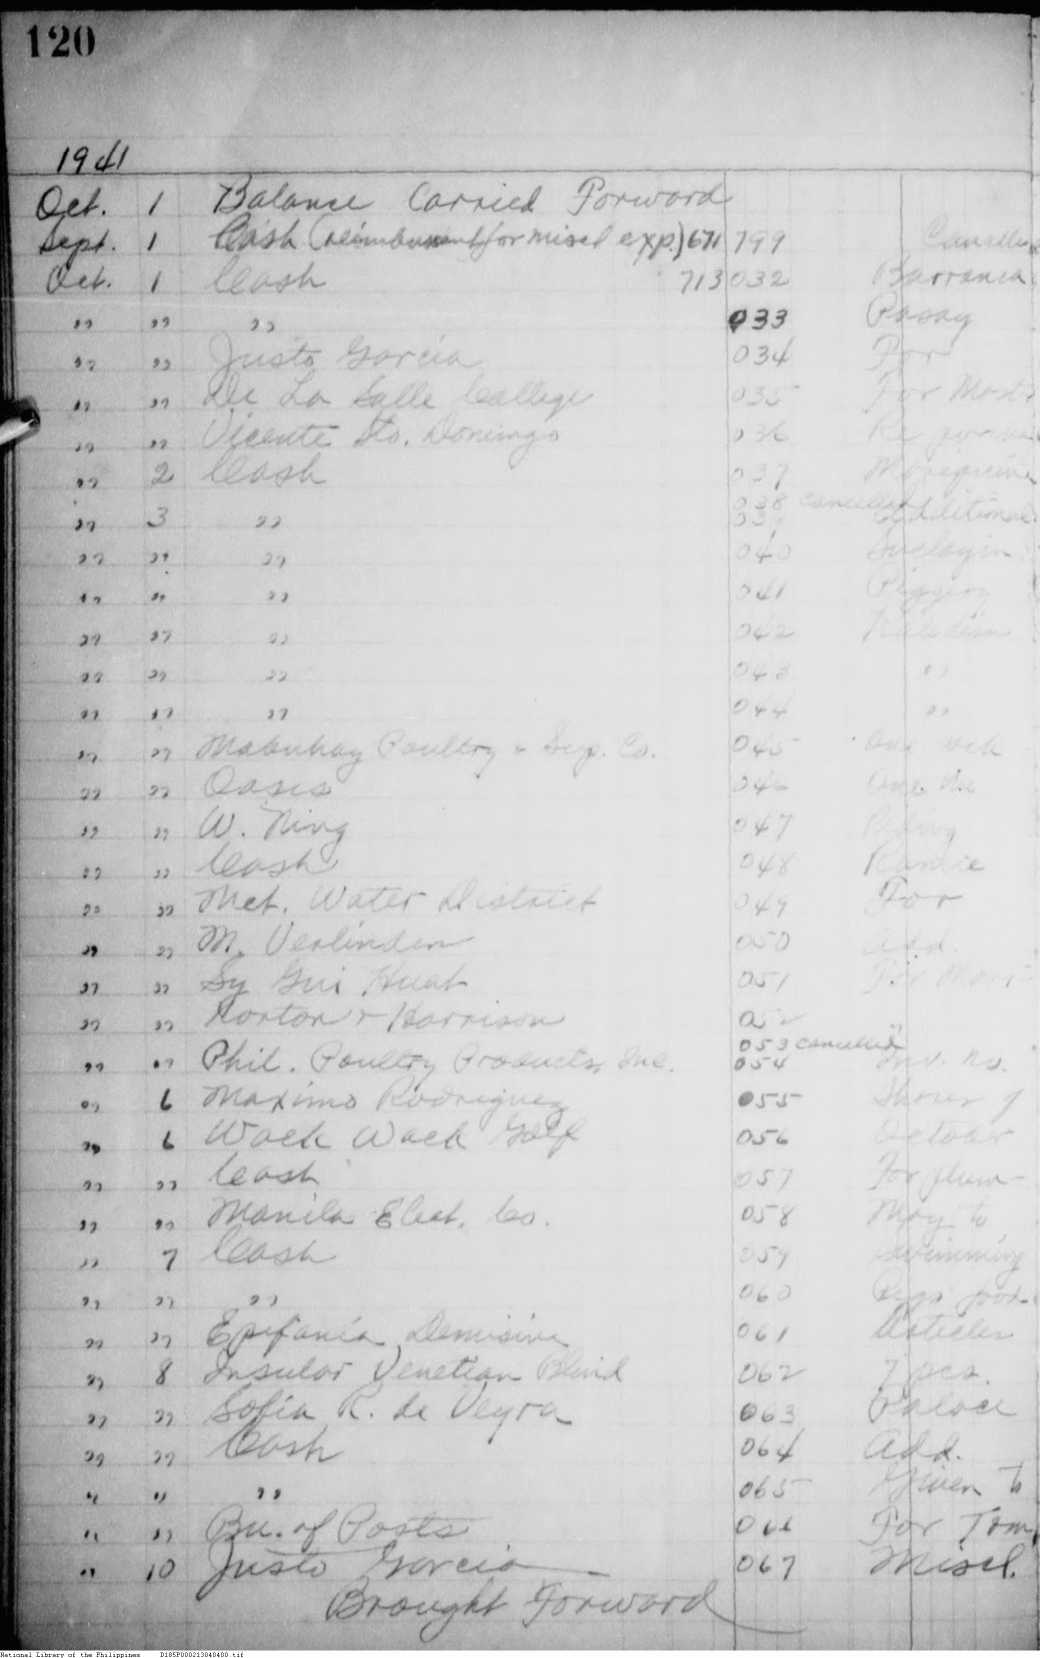 120
1941
Oct. 1 Balance Carried Forward
Sept. 1 Cash (reimbursement for miscl exp.) 671 799 Cancelled
Oct. 1 Cash 713 032 Barranca
" " " 033 Pasay
" " Justo Garcia 034 For
" " De La Salle College 035 For
" " Vicente Sto. Domingo 036
" 2 Cash 037
038 cancelled
" 3 " 039 Additional
" " " 040
" " " 041 Piggery
" " " 042
" " " 043 "
" " " 044 "
" " Mabuhay Poultry & Sup. Co. 045 One
" " Oasis 046 One
" " W. Ning 047
" " Cash 048
" " Met. Water District 049 For
" " M. Verlinden 050 Add.
" " Sy Gui Huat 051 For
" " Norton & Harrison 052
053 cancelled
" " Phil. Poultry Products, Inc. 054 Inv. No.
" 6 Maximo Rodriguez 055 Shares of
" 6 Wack Wack Golf 056 October
" " Cash 057 For plum-
" " Manila Elect. Co. 058 May to
" 7 Cash 059 swimming
" " " 060
" " Epifania 061 Articles
" 8 Insular Venetian Blind 062 7 pcs.
" " Sofia R. de Veyra 063 Palace
" " Cash 064 Add.
" " " 065 Given to
" " Bu. of Posts 066 For Tom
" 10 Justo Garcia 067 Miscl.
Brought Forward
National Library of the Philippines D185P000213040400.tif